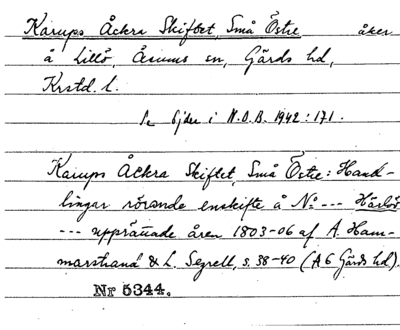 Karups Åckra Skiftet, Små Östre åker
å Lillö, Åsums sn, Gärds hd,
Krstd. l.
Se Ejder i N.O.B. 1942:171.
Karups Åckra Skiftet, Små Östre: Hand-
lingar rörande enskifte å No --- Härlöv
--- upprättade åren 1803-06 af A. Ham-
marstrand & L. Segrell, s. 38-40 (A 6 Gärds hd).
Nr 5344.